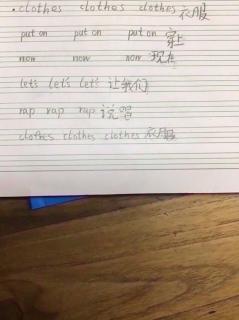 clothes clothes clothes 衣服
put on put on put on 穿上
now now now 现在
let's let's let's 让我们
rap rap rap 说唱
clothes clothes clothes 衣服